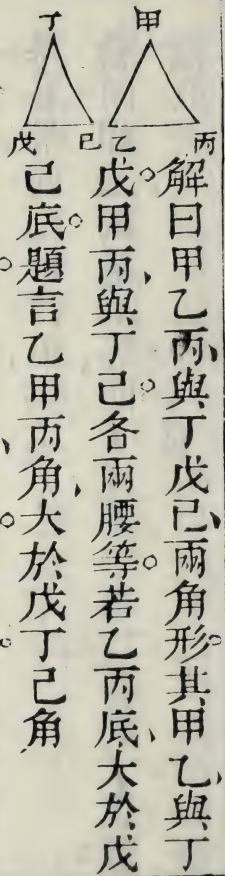 甲
乙
丙
丁
戊
己
解曰甲乙丙、與丁戊己、兩角形。其甲乙、與丁
戊。甲丙、與丁己。各兩腰等。若乙丙底、大於戊
己底。題言乙甲丙角、大於戊丁己角